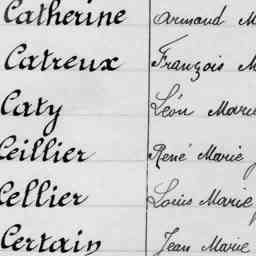 Catherine Armand M
Catreux François M
Caty Léon Marie
Ceillier René Marie
Cellier Louis Marie
Certain Jean Marie